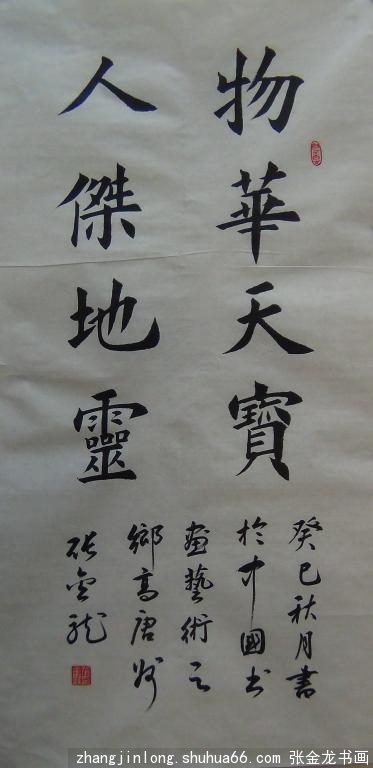 物華天寶
人傑地靈
癸巳秋月書
於中國书
画藝術之
鄉高唐州
张金龙
zhangjinlong.shuhua66.com 张金龙书画